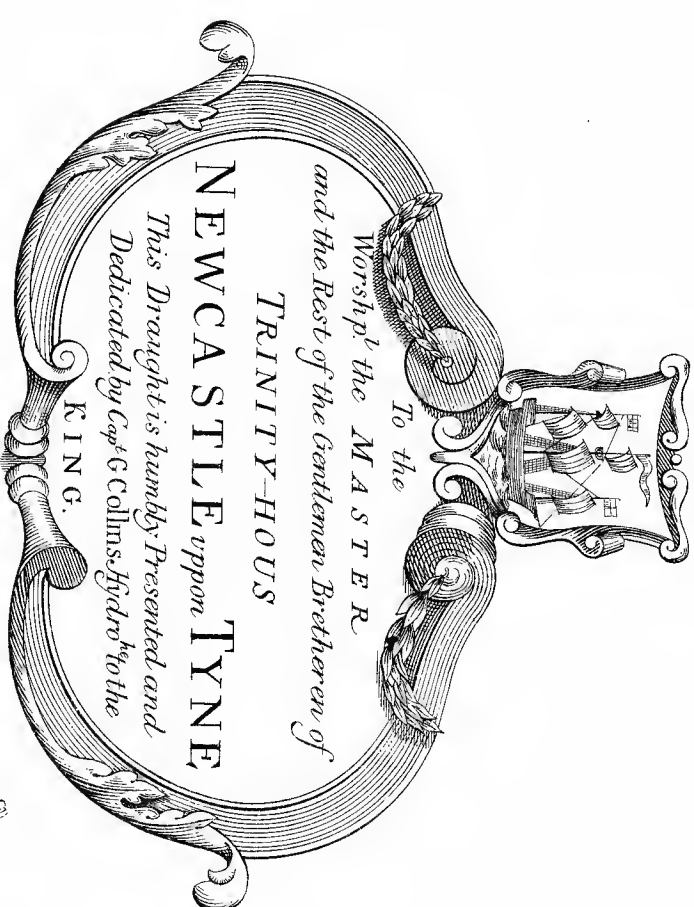 To the
Worshp.ˡ the MASTER
and the Rest of the Gentlemen Bretheren of
TRINITY-HOUS
NEWCASTLE uppon TYNE
This Draught is humbly Presented and
Dedicated by Capᵗ G Collins Hydroʰᵉ to the
KING.